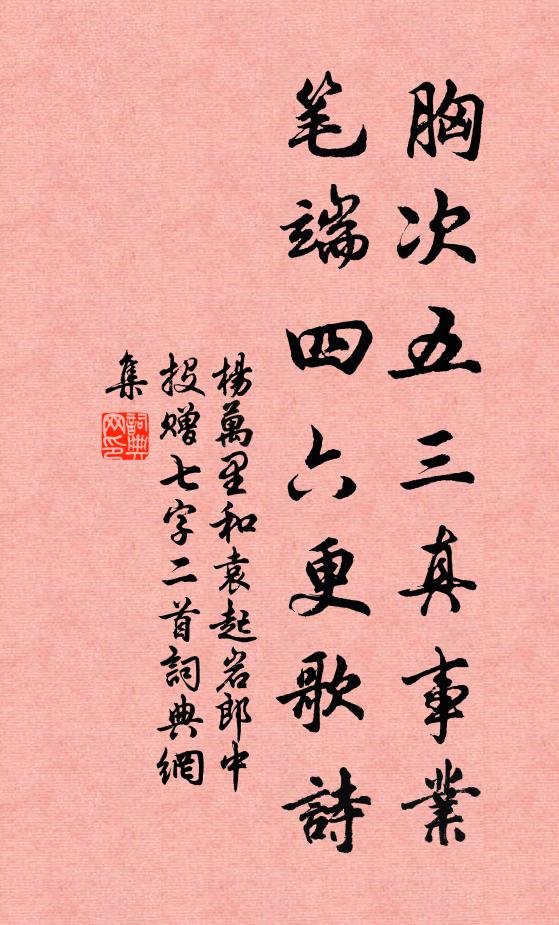 胸次五三真事業
笔端四六更歌詩
楊萬里和袁起岩郎中
投赠七字二首詞典網
集
詞典
网印